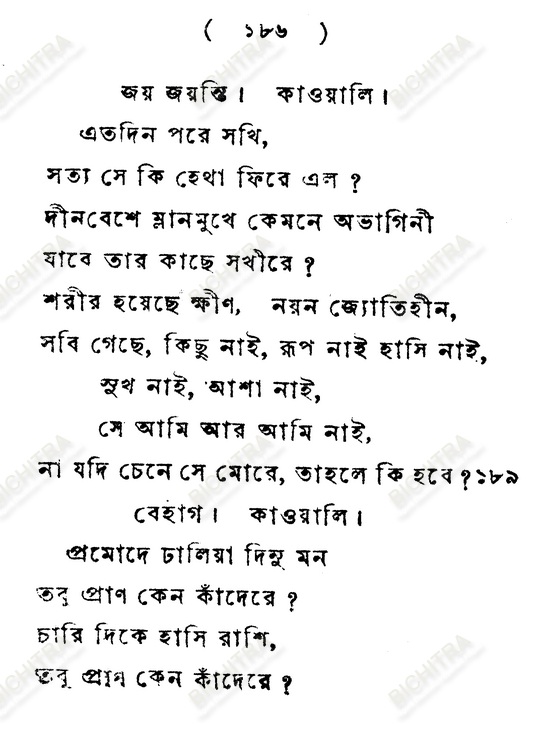 ( ১৮৬ )
জয় জয়ন্তি। কাওয়ালি।
এতদিন পরে সখি,
সত্য সে কি হেথা ফিরে এল ?
দীনবেশে ম্লানমুখে কেমনে অভাগিনী
যাবে তার কাছে সখীরে ?
শরীর হয়েছে ক্ষীণ, নয়ন জ্যোতিহীন,
সবি গেছে, কিছু নাই, রূপ নাই হাসি নাই,
সুখ নাই, আশা নাই,
সে আমি আর আমি নাই,
না যদি চেনে সে মোরে, তাহলে কি হবে ?১৮৯
বেহাগ। কাওয়ালি।
প্রমোদে ঢালিয়া দিনু মন
তবু প্রাণ কেন কাঁদেরে ?
চারি দিকে হাসি রাশি,
তবু প্রাণ কেন কাঁদেরে ?
BICHITRA